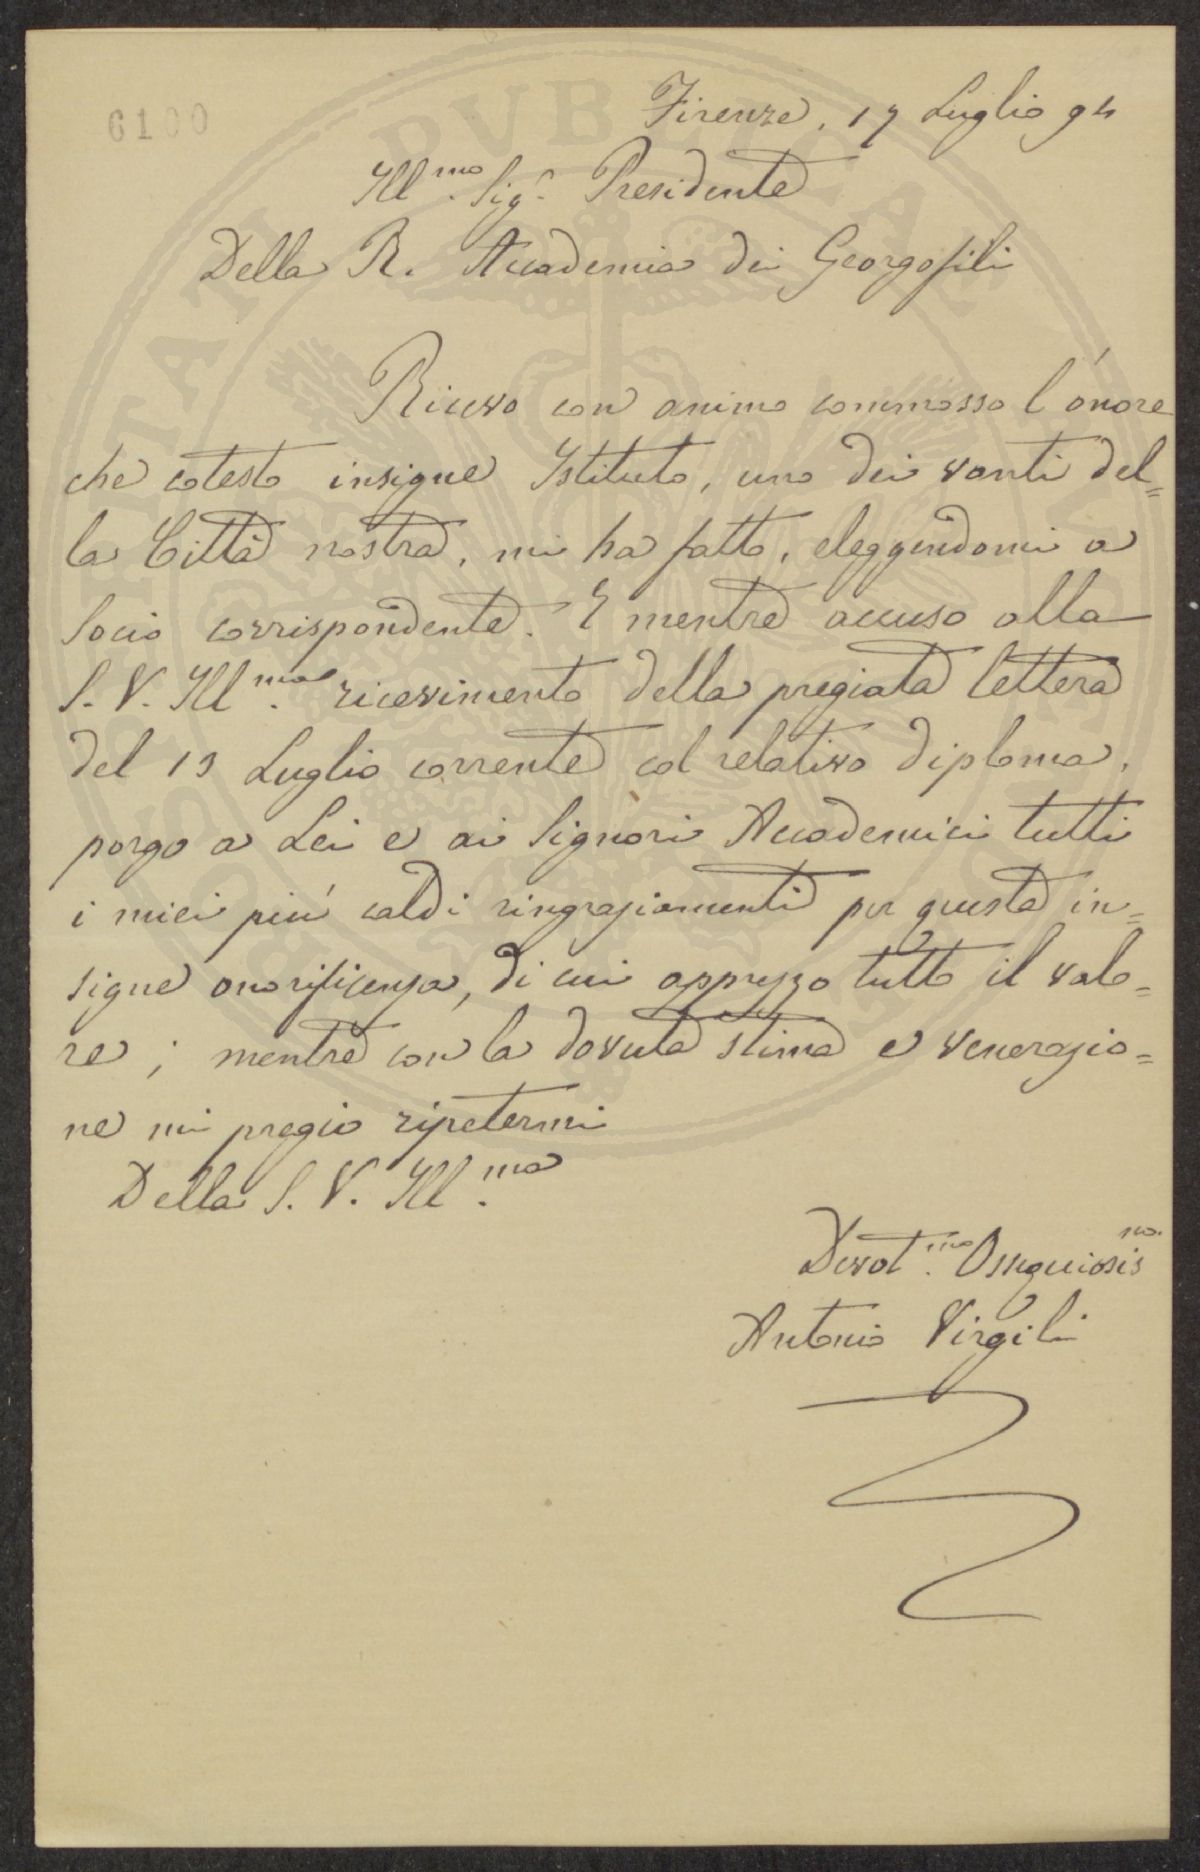 6100
Firenze, 17 Luglio 94
Ill.mo Sig.r Presidente
Della R. Accademia dei Georgofili
Ricevo con animo commosso l'onore
che cotesto insigne Istituto, uno dei vanti del=
la Città nostra, mi ha fatto, eleggendomi a
Socio corrispondente. E mentre accuso alla
S. V. Ill.ma ricevimento della pregiata lettera
del 13 Luglio corrente col relativo diploma,
porgo a Lei e ai Signori Accademici tutti
i miei più caldi ringraziamenti per questa in=
signe onorificenza, di cui apprezzo tutto il valo=
re; mentre con la dovuta stima e venerazio=
ne mi pregio ripetermi
Della S. V. Ill.ma
Devot.mo Ossequiosis.mo
Antonio Virgili